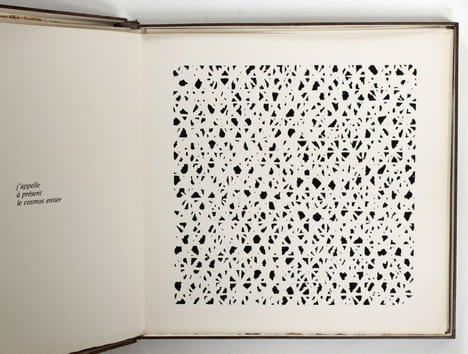 j'appelle
à présent
le cosmos entier